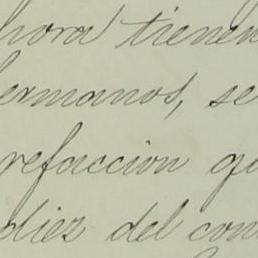 hora tienen
ermanos, se
refaccion qu
diez del con